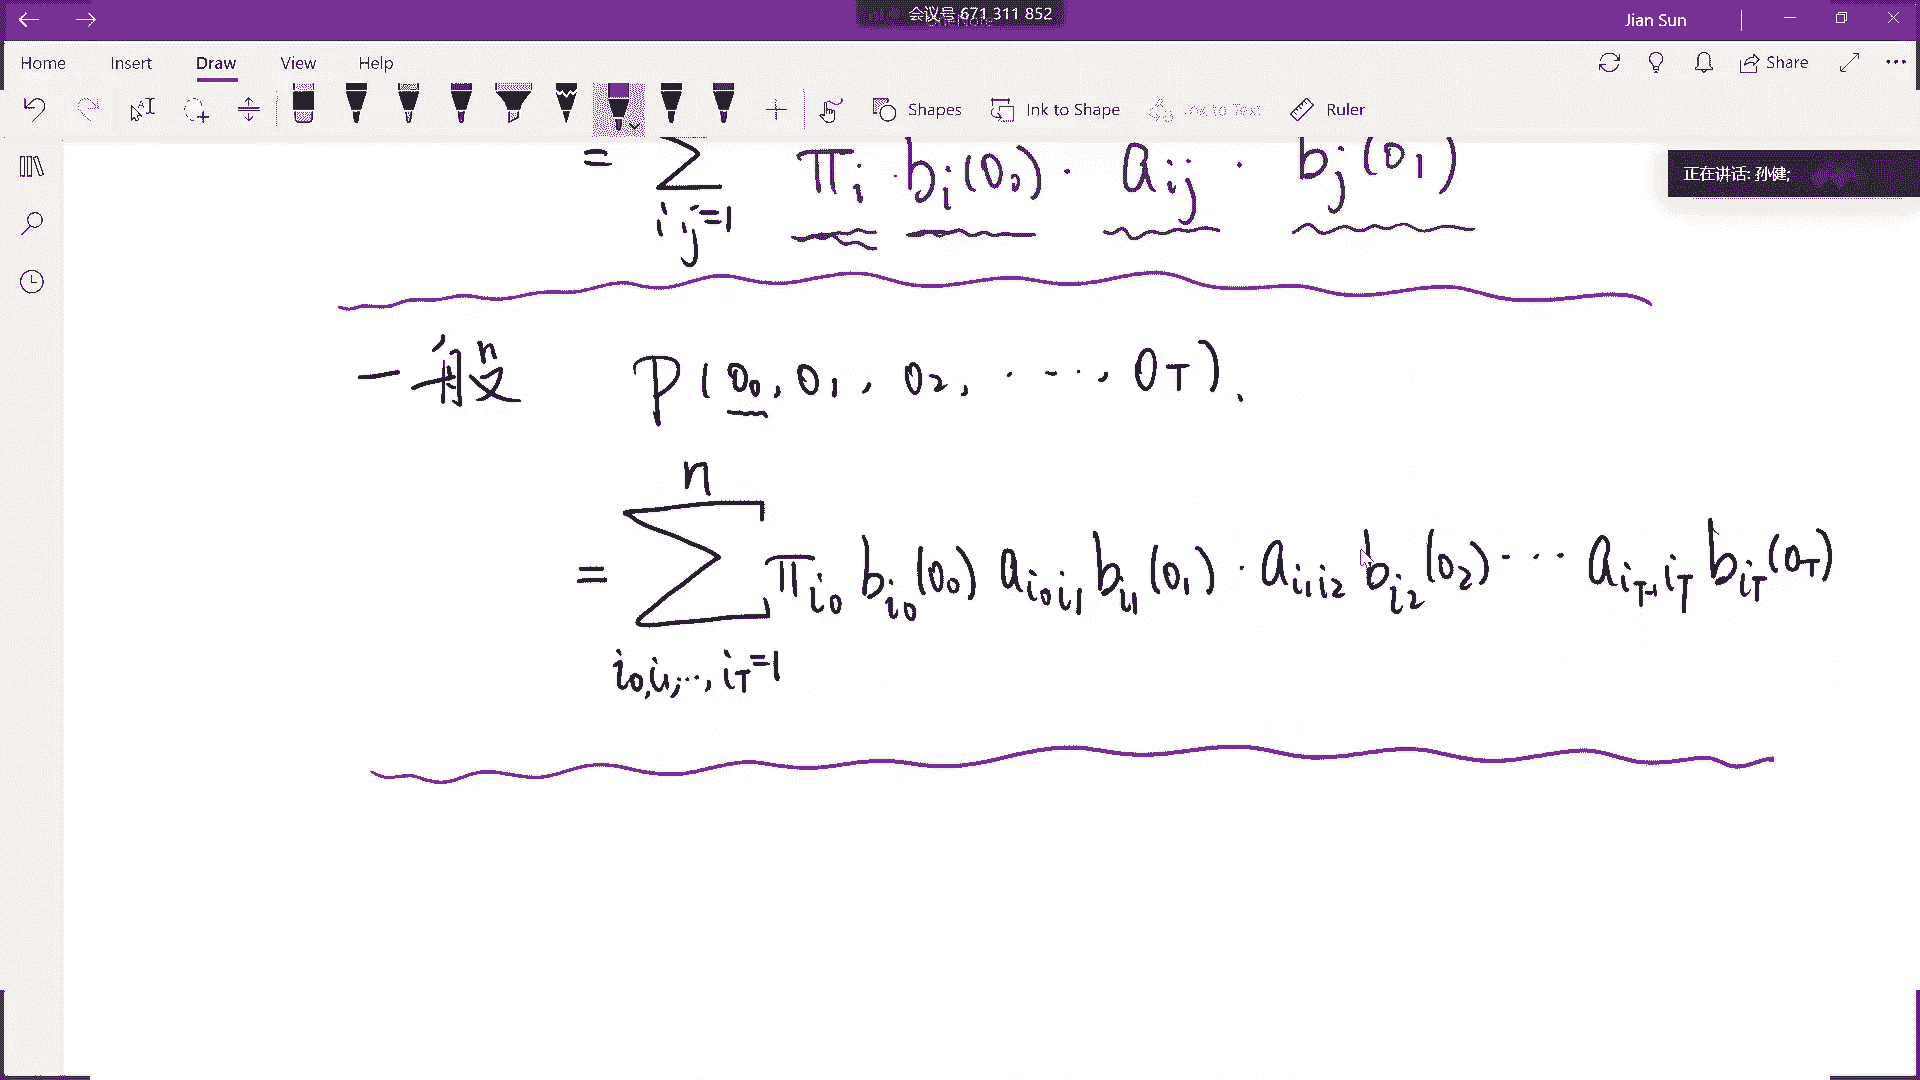 会议号 671 311 852
Jian Sun
Home Insert Draw View Help
Share
Shapes Ink to Shape Ink to Text Ruler
正在讲话: 孙健;
= ∑ πᵢ · bᵢ(o₀) · aᵢⱼ · bⱼ(o₁)
i,j=1
一般 P(o₀, o₁, o₂, ⋯, o_T).
n
= ∑ π_{i₀} b_{i₀}(o₀) a_{i₀i₁} b_{i₁}(o₁) · a_{i₁i₂} b_{i₂}(o₂) ⋯ a_{i_{T-1}i_T} b_{i_T}(o_T)
i₀,i₁,⋯, i_T=1